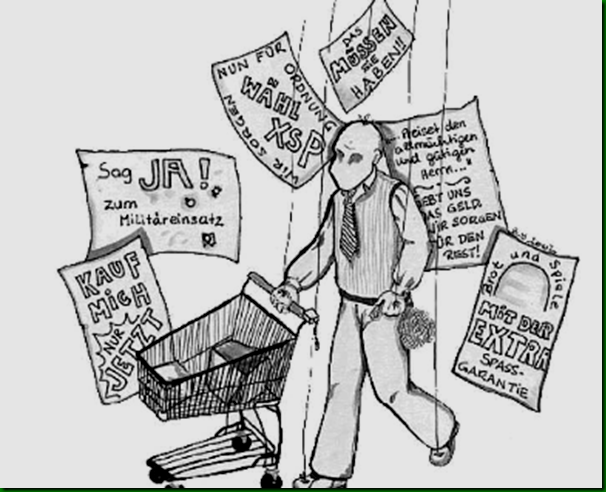 DAS
MÜSSEN
SIE
HABEN!!
NUN FÜR
ORDNUNG
WÄHL
XSP
WIR SORGEN
"...Preiset den
allmächtigen
und gütigen
Herrn..."
GEBT UNS
DAS GELD.
WIR SORGEN
FÜR DEN
REST!
Sag JA!
zum
Militäreinsatz
KAUF
MICH
NUR
JETZT
Brot und Spiele
MIT DER
EXTRA
SPASS-
GARANTIE